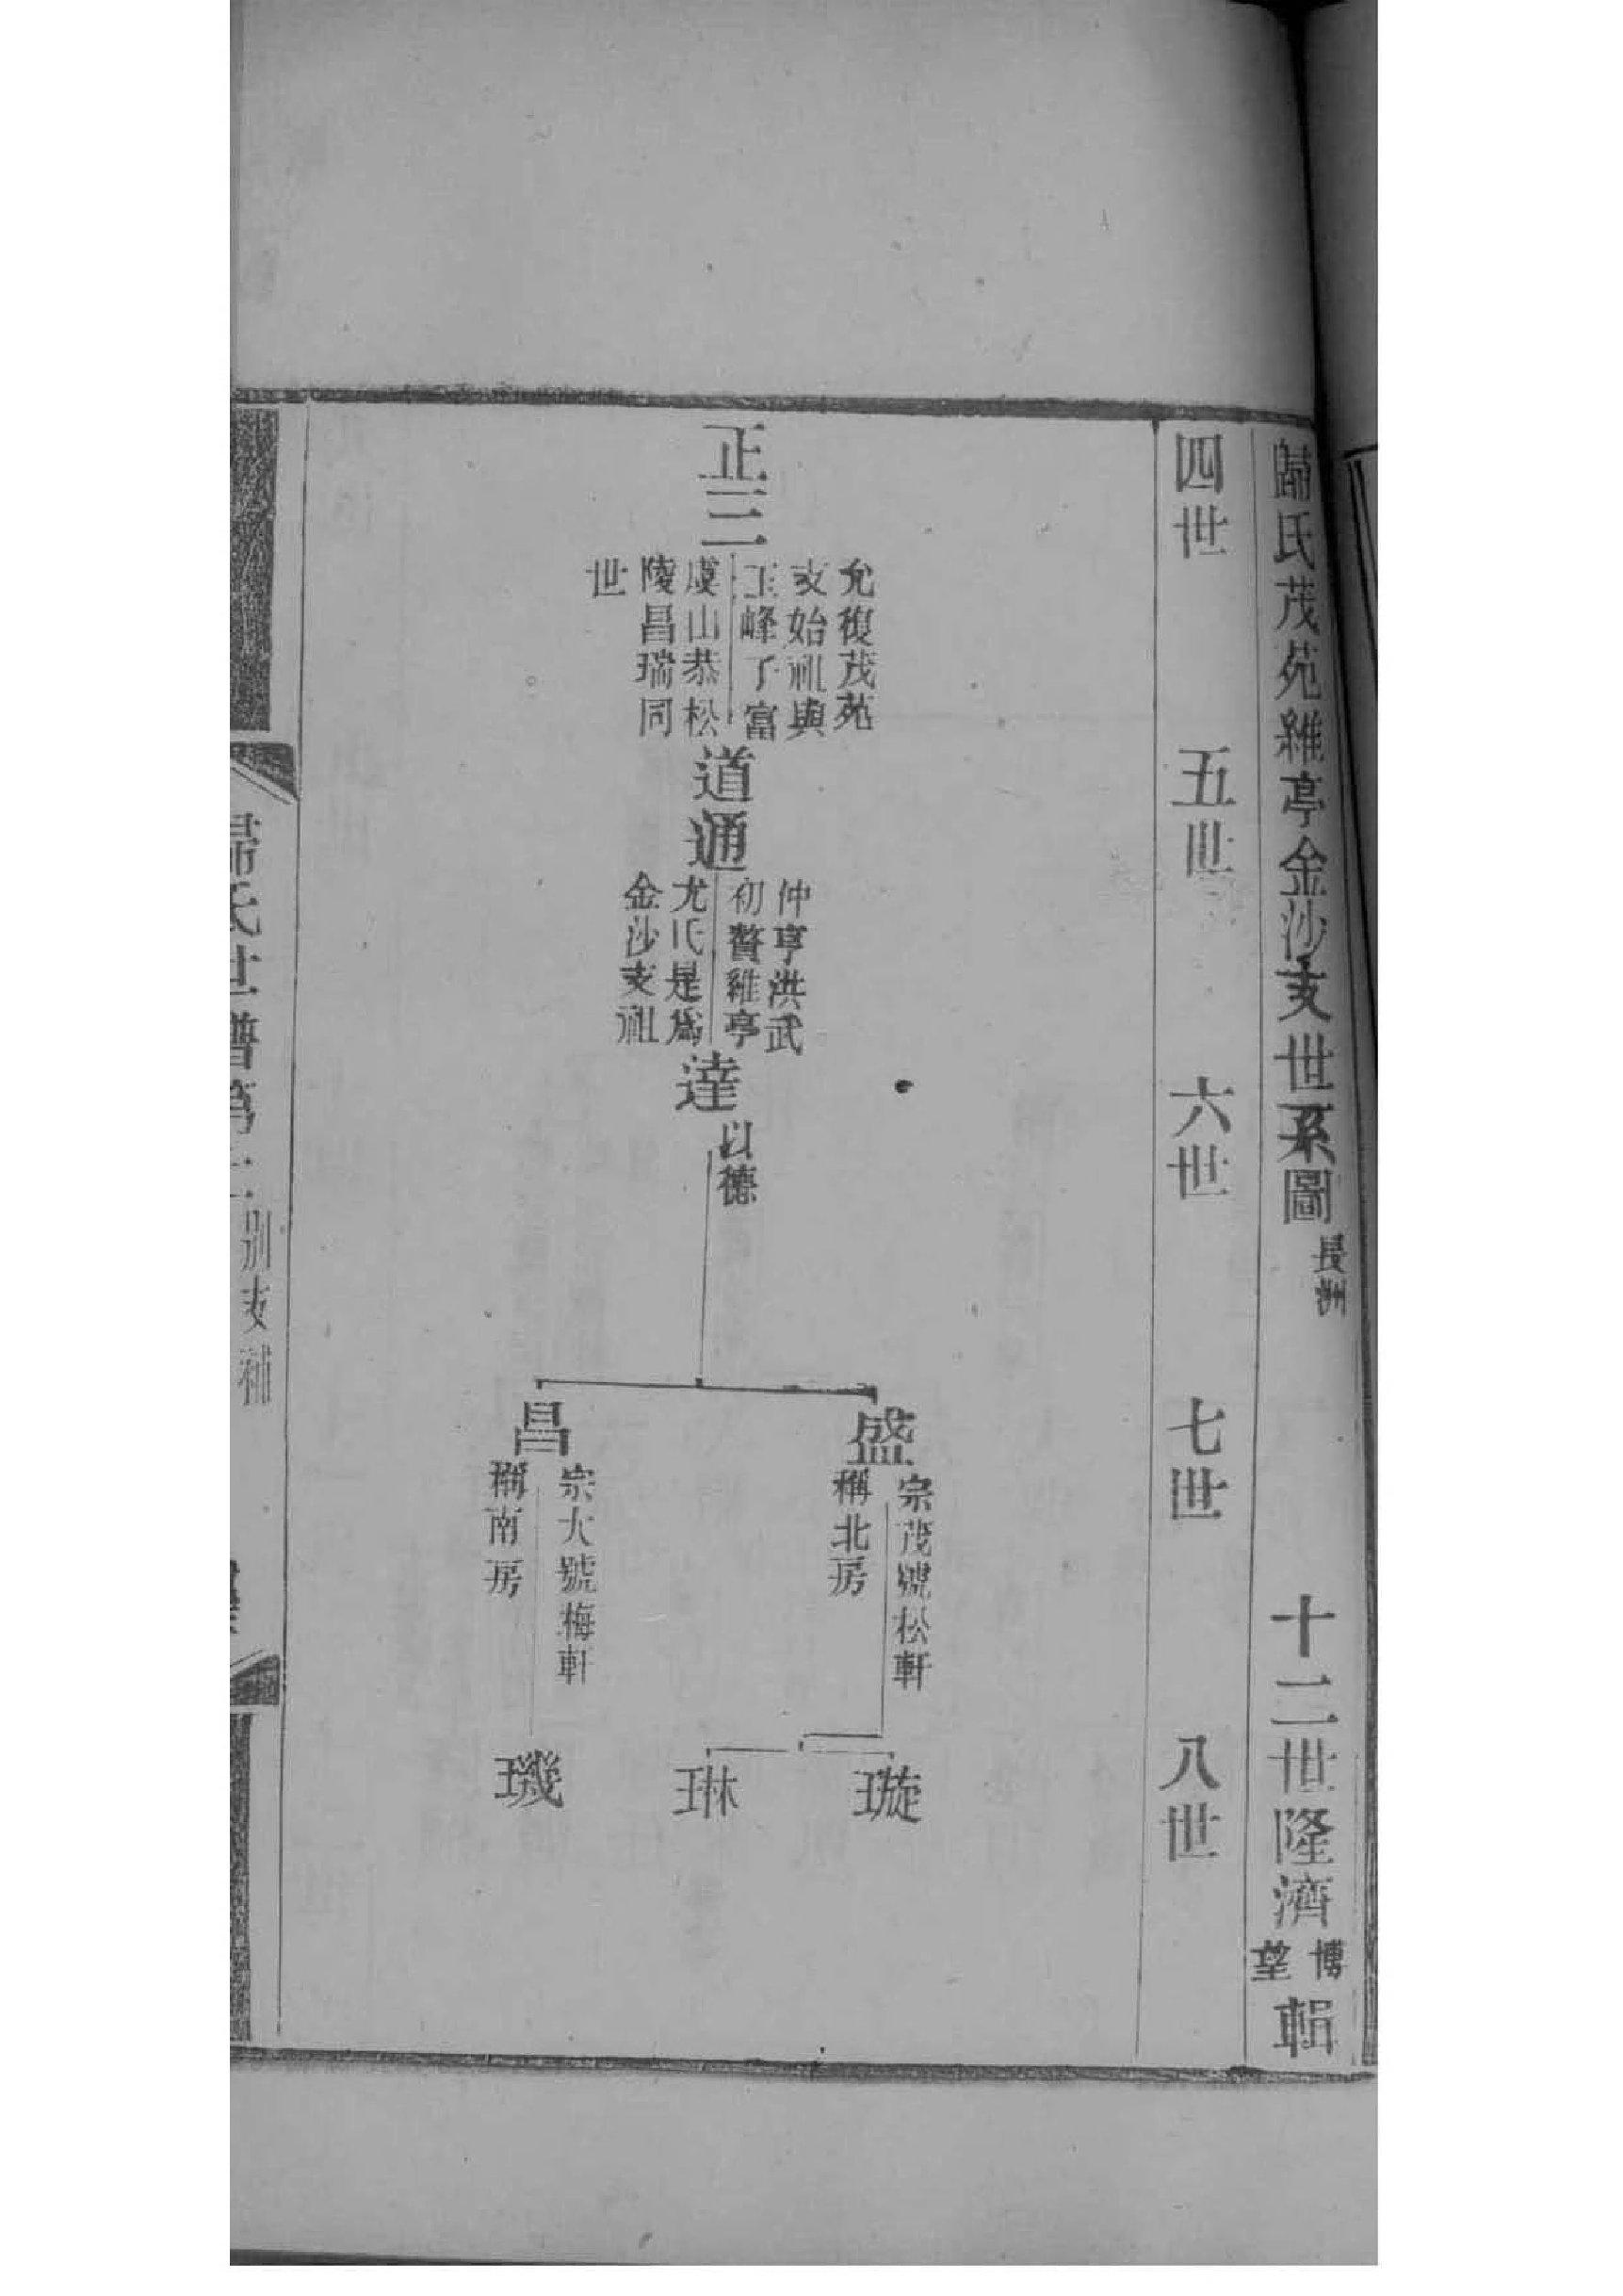 歸氏茂苑維亭金沙支世系圖
長洲
十二世隆濟
博望
輯
四世
五世
六世
七世
八世
正三
允復茂苑
支始祖與
玉峰了富
虞山恭松
陵昌瑞同
世
道通
仲亨洪武
初贅維亭
尤氏是爲
金沙支祖
達
以德
盛
宗茂號松軒
稱北房
昌
宗大號梅軒
稱南房
璇
琳
璣
歸氏世譜第
別支補